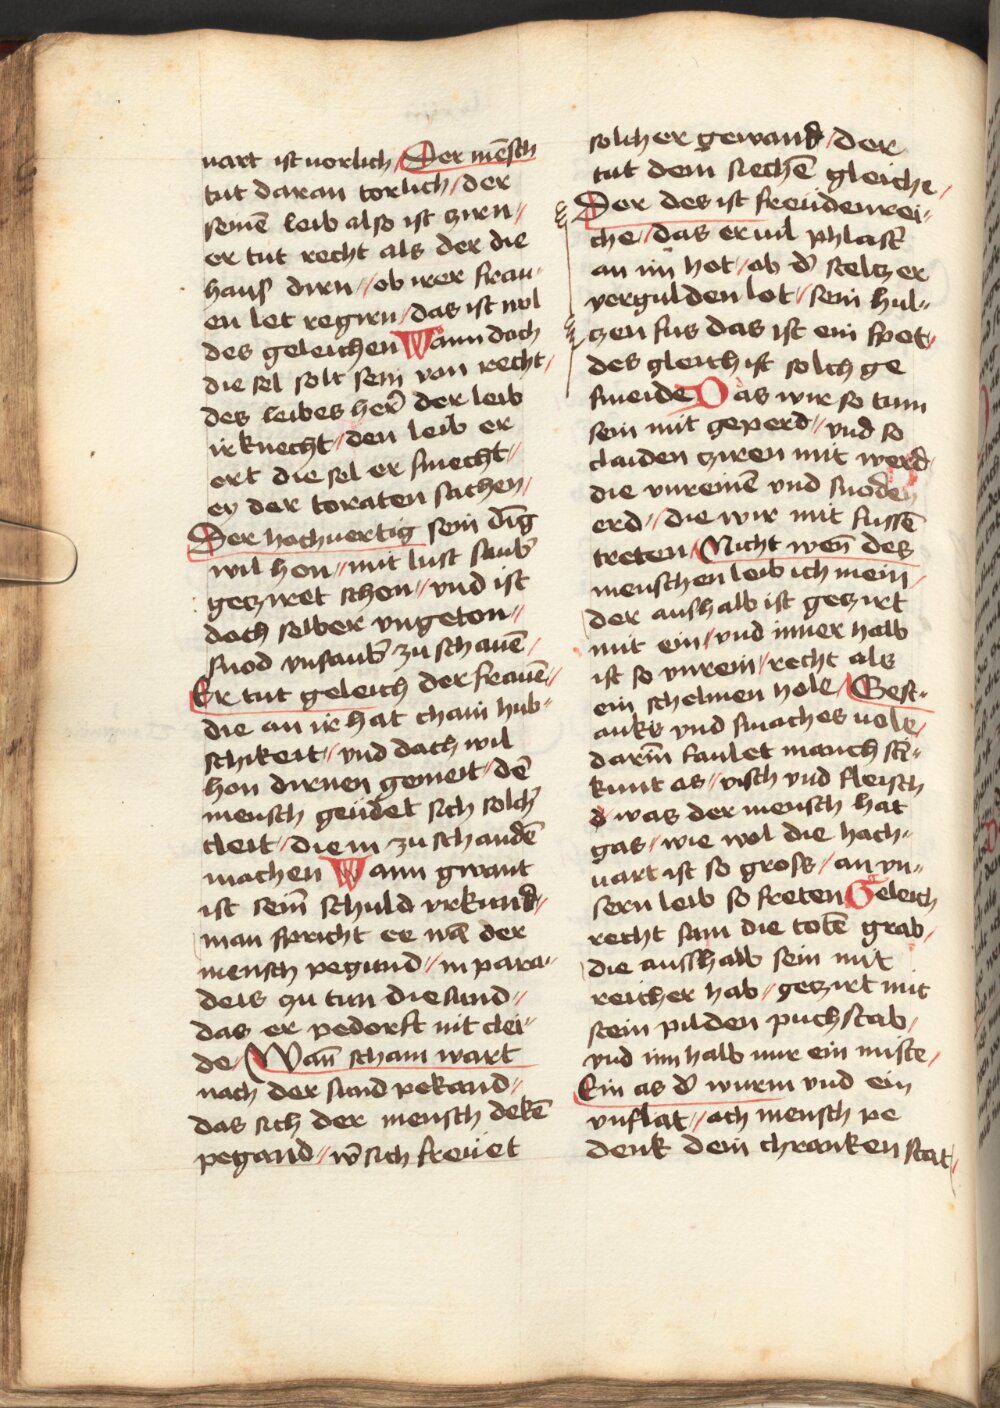 vart ist vorlich / Der mēsch
tut daran torlich / der
seinē leib also ist zirn //
er tut recht als der die
haus dirn // ob irer frau-
en let regirn / das ist wol
des geleichen Wann doch
die sel solt sein von recht /
des leibes her̄ der leib
ir knecht / den leib er
ert die sel er smecht //
ey der toraten sachen /
Der hochuertig sein dīg
wil hon // mit lust saub̄
geziret schon // vnd ist
doch selber vngeton //
snod vnsaub̄ zu schauē /
Er tut geleich der frauē //
die an ir hat chain hub-
schikeit // vnd doch wil
hon dirnen gemeit // dē
mensch geudet sich solch̄
cleit / die in zu schandē
machen Wann gwant
ist seīn schuld vrkund //
man spricht ee wā der
mensch pegund // in para-
deis zu tun die sund //
das er pedorft nit clei-
de / Wan̄ scham wart
nach der sund pekand //
das sich der mensch dekē
pegand // w̄ sich freuet
solicher gewand / der
tut dem siechē gleiche /
Der des ist freudenrei-
che // das er uil phlast̄
an im hot / ob d̄ steltzer
vergulden lot // sein hul-
zen fus das ist ein spot //
des gleich ist solch ge
smeide Das wir so tum
sein mit geperd // vnd so
claiden ziren mit werd
die vnreinē vnd snoden
erd // die wir mit fussē
treten / Nicht wen̄ des
menschen leib ich mein /
der aushalb ist gezirt
mit ein / vnd inner halb
ist so vnrein / recht als
ein schelmen hole / Gest-
anks vnd smaches uole /
darīn faulet manch sti-
kunt as // visch vnd fleisch
d / was der mensch hat
gas / wie wol die hoch-
uart ist so gross / an vn-
sern leib so freten Geleich
recht sam die totē grab /
die ausshalb sein mit
reicher hab // gezirt mit
stein pilden puchstab /
vnd inhalb nur ein miste /
Ein as d̄ wurm vnd ein
vnflat // och mensch pe
denk dein chranken stat /